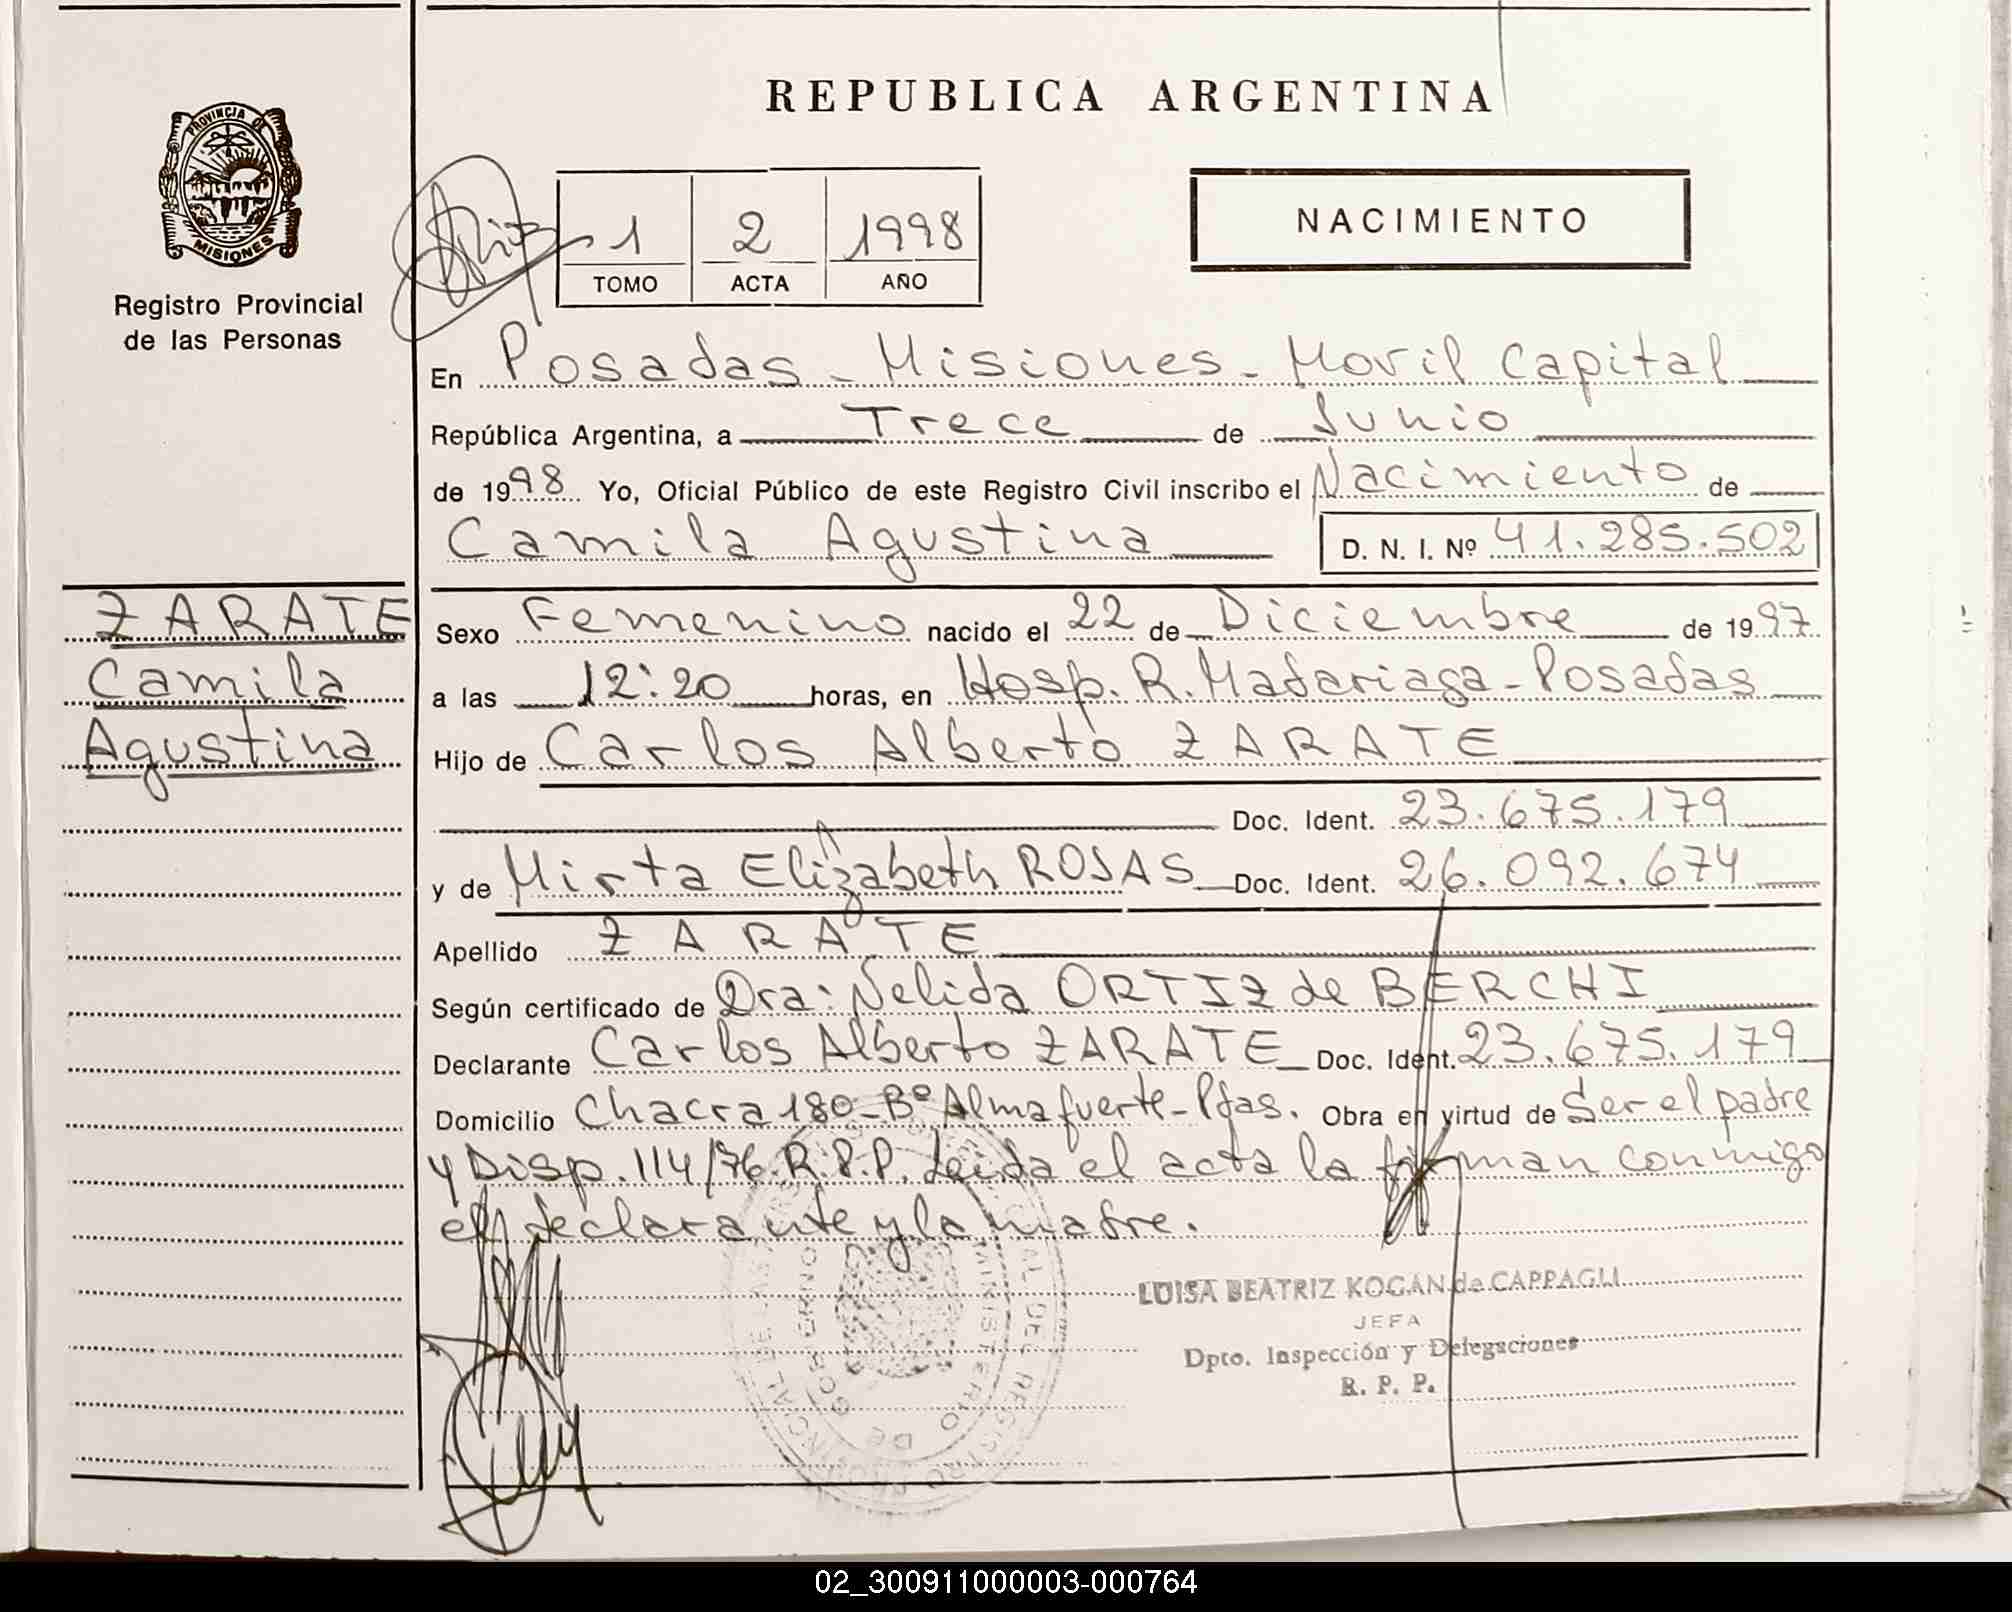 REPUBLICA ARGENTINA
PROVINCIA DE
MISIONES
Registro Provincial
de las Personas
1 2 1998
TOMO ACTA AÑO
NACIMIENTO
En Posadas - Misiones - Movil Capital
República Argentina, a Trece de Junio
de 1998 Yo, Oficial Público de este Registro Civil inscribo el Nacimiento de
Camila Agustina D. N. I. Nº 41.285.502
ZARATE
Camila
Agustina
Sexo Femenino nacido el 22 de Diciembre de 1997
a las 12:20 horas, en Hosp. R. Madariaga - Posadas
Hijo de Carlos Alberto ZARATE
Doc. Ident. 23.675.179
y de Mirta Elizabeth ROJAS Doc. Ident. 26.092.674
Apellido ZARATE
Según certificado de Dra: Nelida ORTIZ de BERCHI
Declarante Carlos Alberto ZARATE Doc. Ident. 23.675.179
Domicilio Chacra 180 - Bº Almafuerte - Pdas. Obra en virtud de Ser el padre
y Disp. 114/76 R.P.P. Leida el acta la firman conmigo
el declarante y la madre.
LUISA BEATRIZ KOGAN de CAPPAGLI
JEFA
Dpto. Inspección y Delegaciones
R. P. P.
MINISTERIO DE GOBIERNO
02_300911000003-000764